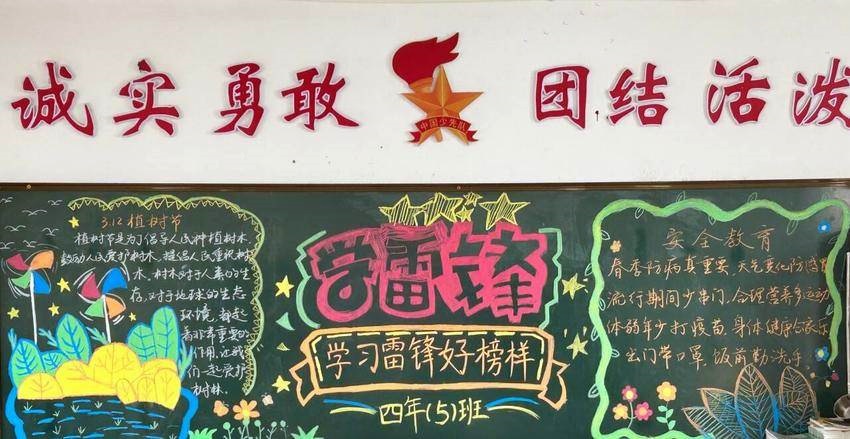 诚实勇敢
中国少先队
团结活泼
3.12植树节
植树节是为了倡导人民种植树木
鼓励人民爱护树木,提醒人民重视树
木,树木对于人类的生
存,对于地球的生态
环境,都起
着非常重要的
作用,让我
们一起爱护
树林.
学雷锋
学习雷锋好榜样
四年(5)班
安全教育
春季防病真重要,天气变化防感冒
流行期间少串门,合理营养多运动
体弱年少打疫苗,身体健康大家乐
出门带口罩,饭前勤洗手